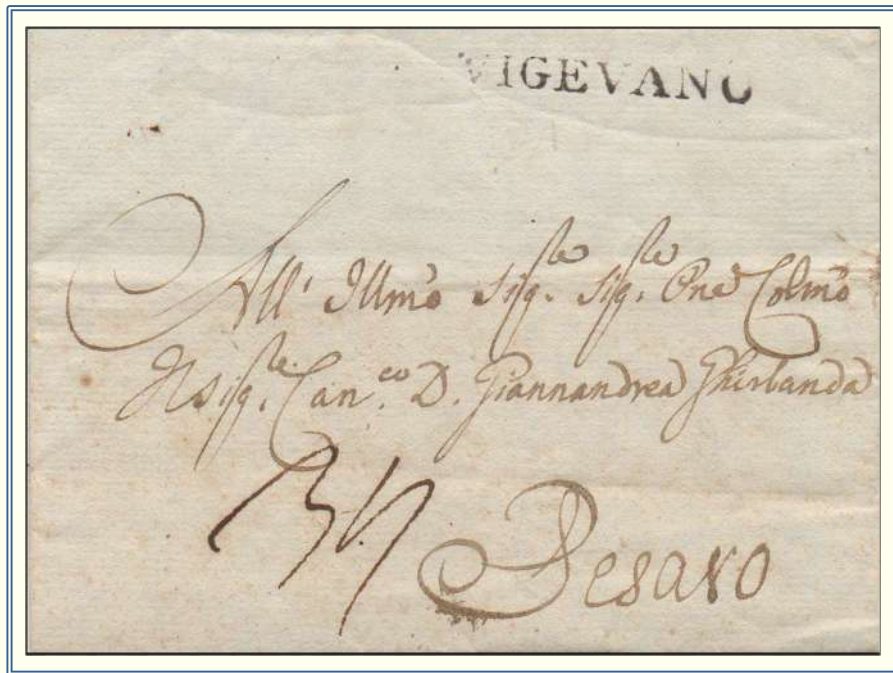 VIGEVANO
All' Illmõ Sig.re Sig.re Pne Colmõ
Il Sig.re Can.co D. Giannandrea Ghirlanda
Pesaro